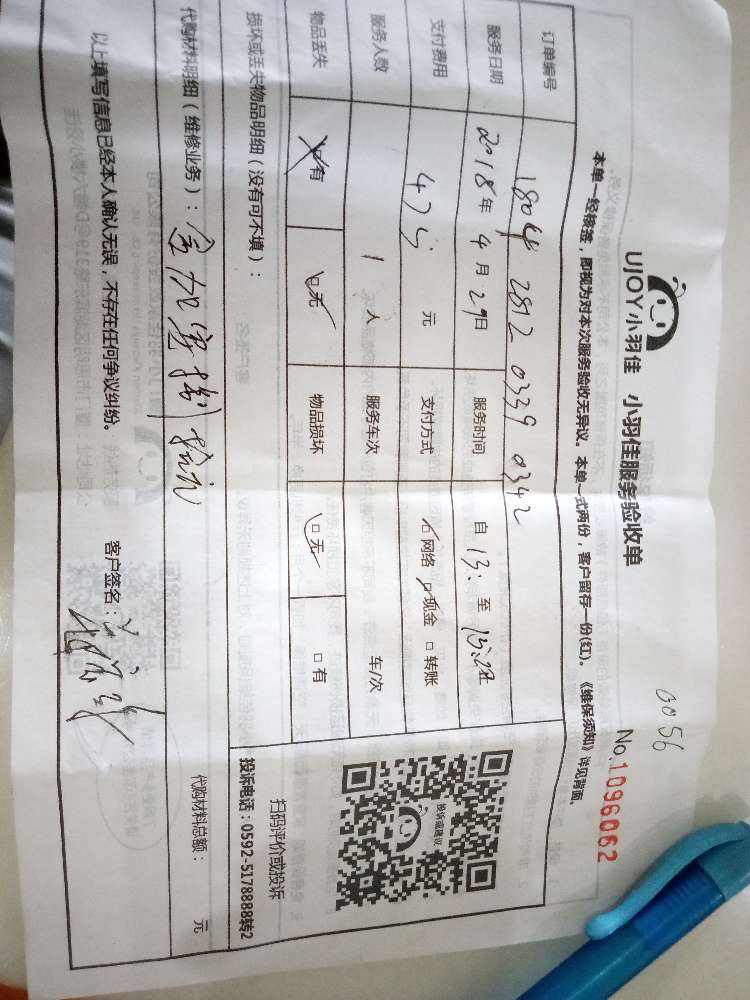 0056
UJOY小羽佳 小羽佳服务验收单 No.1096062
本单一经核签，即视为对本次服务验收无异议。本单一式两份，客户留存一份(红)。《维保须知》详见背面。
订单编号 1804 2812 0339 0342
服务日期 2018年 4月 29日 服务时间 自 13: 至 13:
支付费用 元 支付方式 网络 现金 转账
服务人数 1 人 服务车次 车/次
物品丢失 有 无 物品损坏 无 有
损坏或丢失物品明细（没有可不填）：
投诉或建议
扫码评价或投诉
投诉电话：0592-5178888转2
代购材料明细（维修业务）： 代购材料总额： 元
以上填写信息已经本人确认无误，不存在任何争议纠纷。 客户签名：